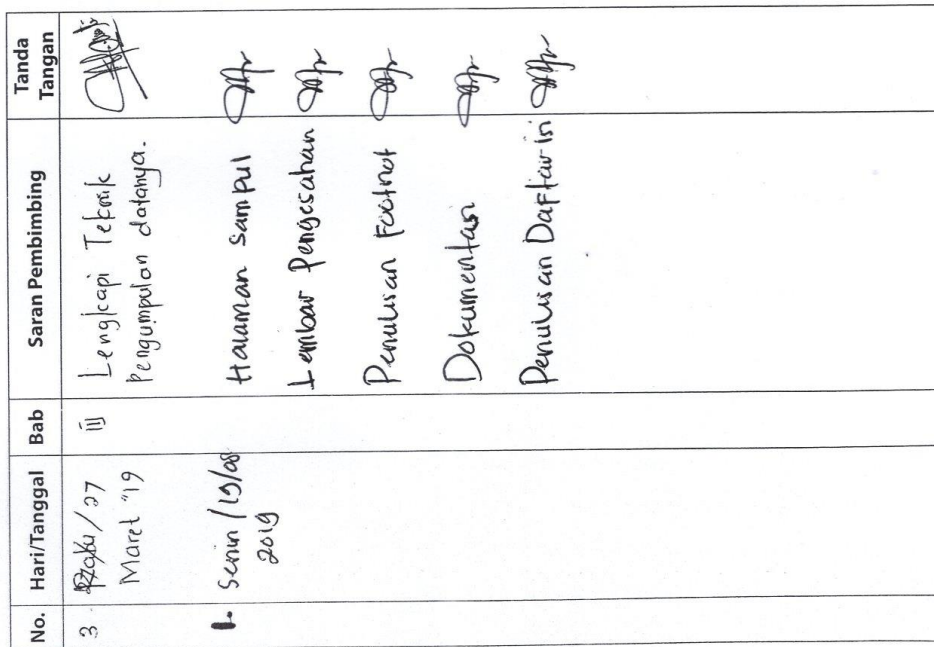 No. Hari/Tanggal Bab Saran Pembimbing Tanda Tangan
3. /27 III Lengkapi Teknik
Maret "19 Pengumpulan datanya.
1. Senin / 19/08 Halaman sampul
2019 Lembar Pengesahan
Penulisan Footnot
Dokumentasi
Penulisan Daftar isi